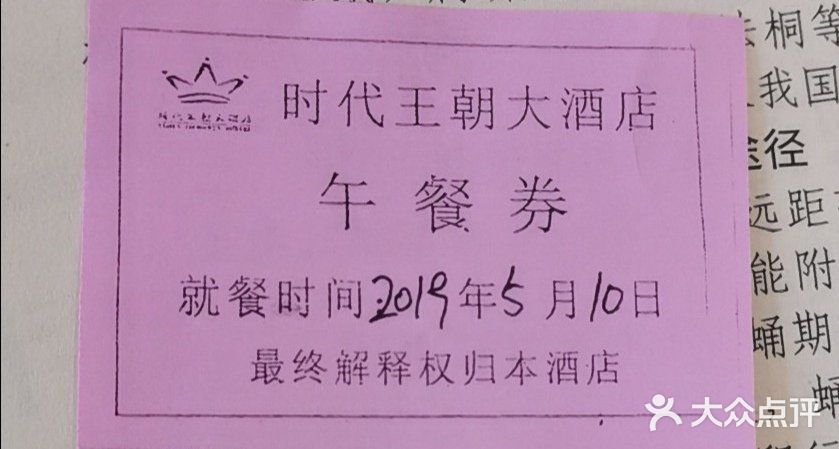 时代王朝大酒店
时代王朝大酒店
午餐券
就餐时间2019年5月10日
最终解释权归本酒店
法桐等
我国
途径
远距
能附
蛹期
蛹
大众点评